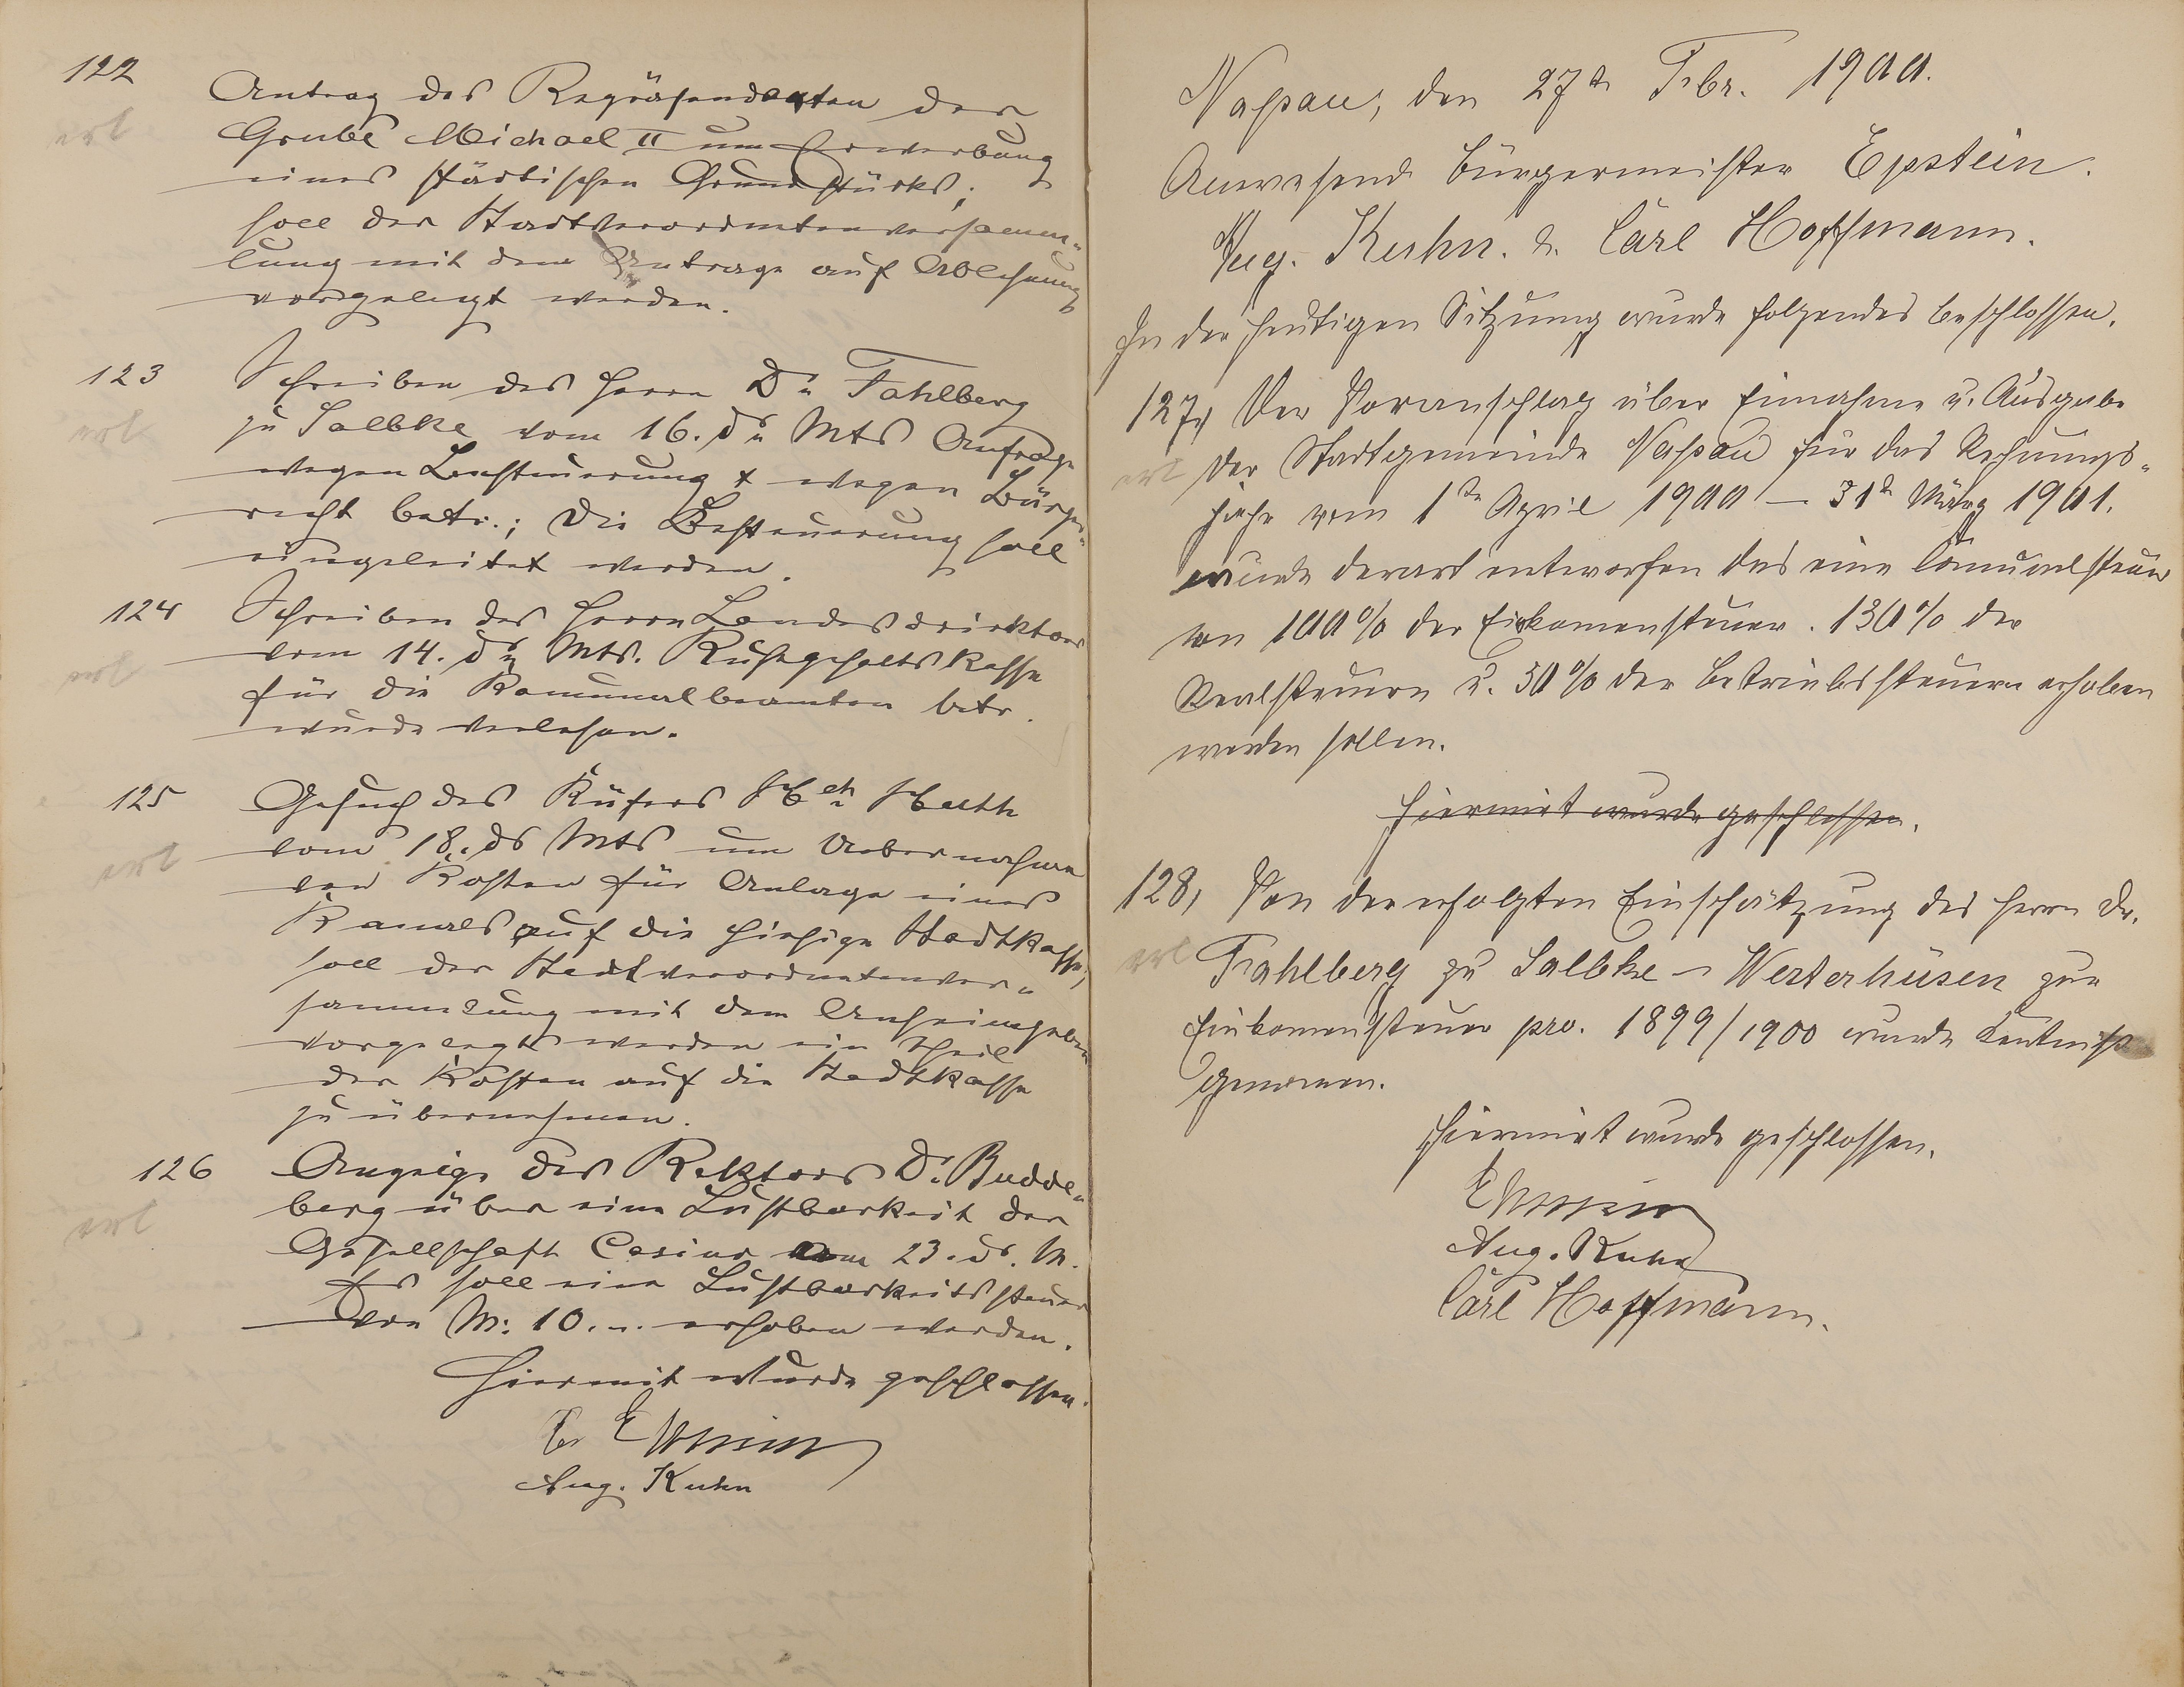 122
erl
Antrag des Repräsendanten der
Grube Michael II um Erwerbung
eines städtischen Grundstücks;
soll der Stadtverordnetenversamm-
lung mit dem Antrage auf Ablehnung
vorgelegt werden.
123
erl
Schreiben des Herrn Dr. Fahlberg
zu Salbke vom 16. ds. Mts Anfrage
wegen Besteuerung & wegen Bürger-
recht betr.; Die Besteuerung soll
eingeleitet werden.
124
erl
Schreiben des Herrn Landesdirektors
vom 14. ds. Mts. Ruhegehaltskasse
für die Kommunalbeamten betr.
wurde verlesen.
125
erl
Gesuch des Küfers Hch.
vom 18. ds Mts um Uebernahme
der Kosten für Anlage eines
Kanals auf die hiesige Stadtkasse;
soll der Stadtverordnetenver-
sammlung mit dem Anheimgeben
vorgelegt werden ein Theil
der Kosten auf die Stadtkasse
zu übernehmen.
126
erl
Anzeige des Rektors Dr. Budde-
berg über eine Lustbarkeit der
Gesellschaft Casino vom 23. ds. M.
Es soll eine Lustbarkeitssteuer
von M: 10.-. erhoben werden.
Hiermit wurde geschlossen.
Epstein
Aug. Kuhn
Nassau, den 27ten Febr. 1900.
Anwesend Bürgermeister Epstein.
Aug. Kuhn. & Carl Hoffmann.
In der heutigen Sitzung wurde folgendes beschlossen.
127, Der Voranschlag über Einnahme u. Ausgabe
erl der Stadtgemeinde Nassau für das Rechnungs-
jahr vom 1ten April 1900 – 31ten März 1901.
wurde derart entworfen das eine Comunalsteuer
von 100% der Einkomensteuer. 130% der
Realsteuern u. 50% der Betriebssteuern erhoben
werden sollen.
Hiermit wurde geschlossen.
128, Von der erfolgten Einschätzung des Herrn Dr.
erl Fahlberg zu Salbke – Westerhüsen zur
Einkomensteuer pro. 1899/1900 wurde Kentniß
genomen.
Hiermit wurde geschlossen.
Epstein
Aug. Kuhn
Carl Hoffmann.